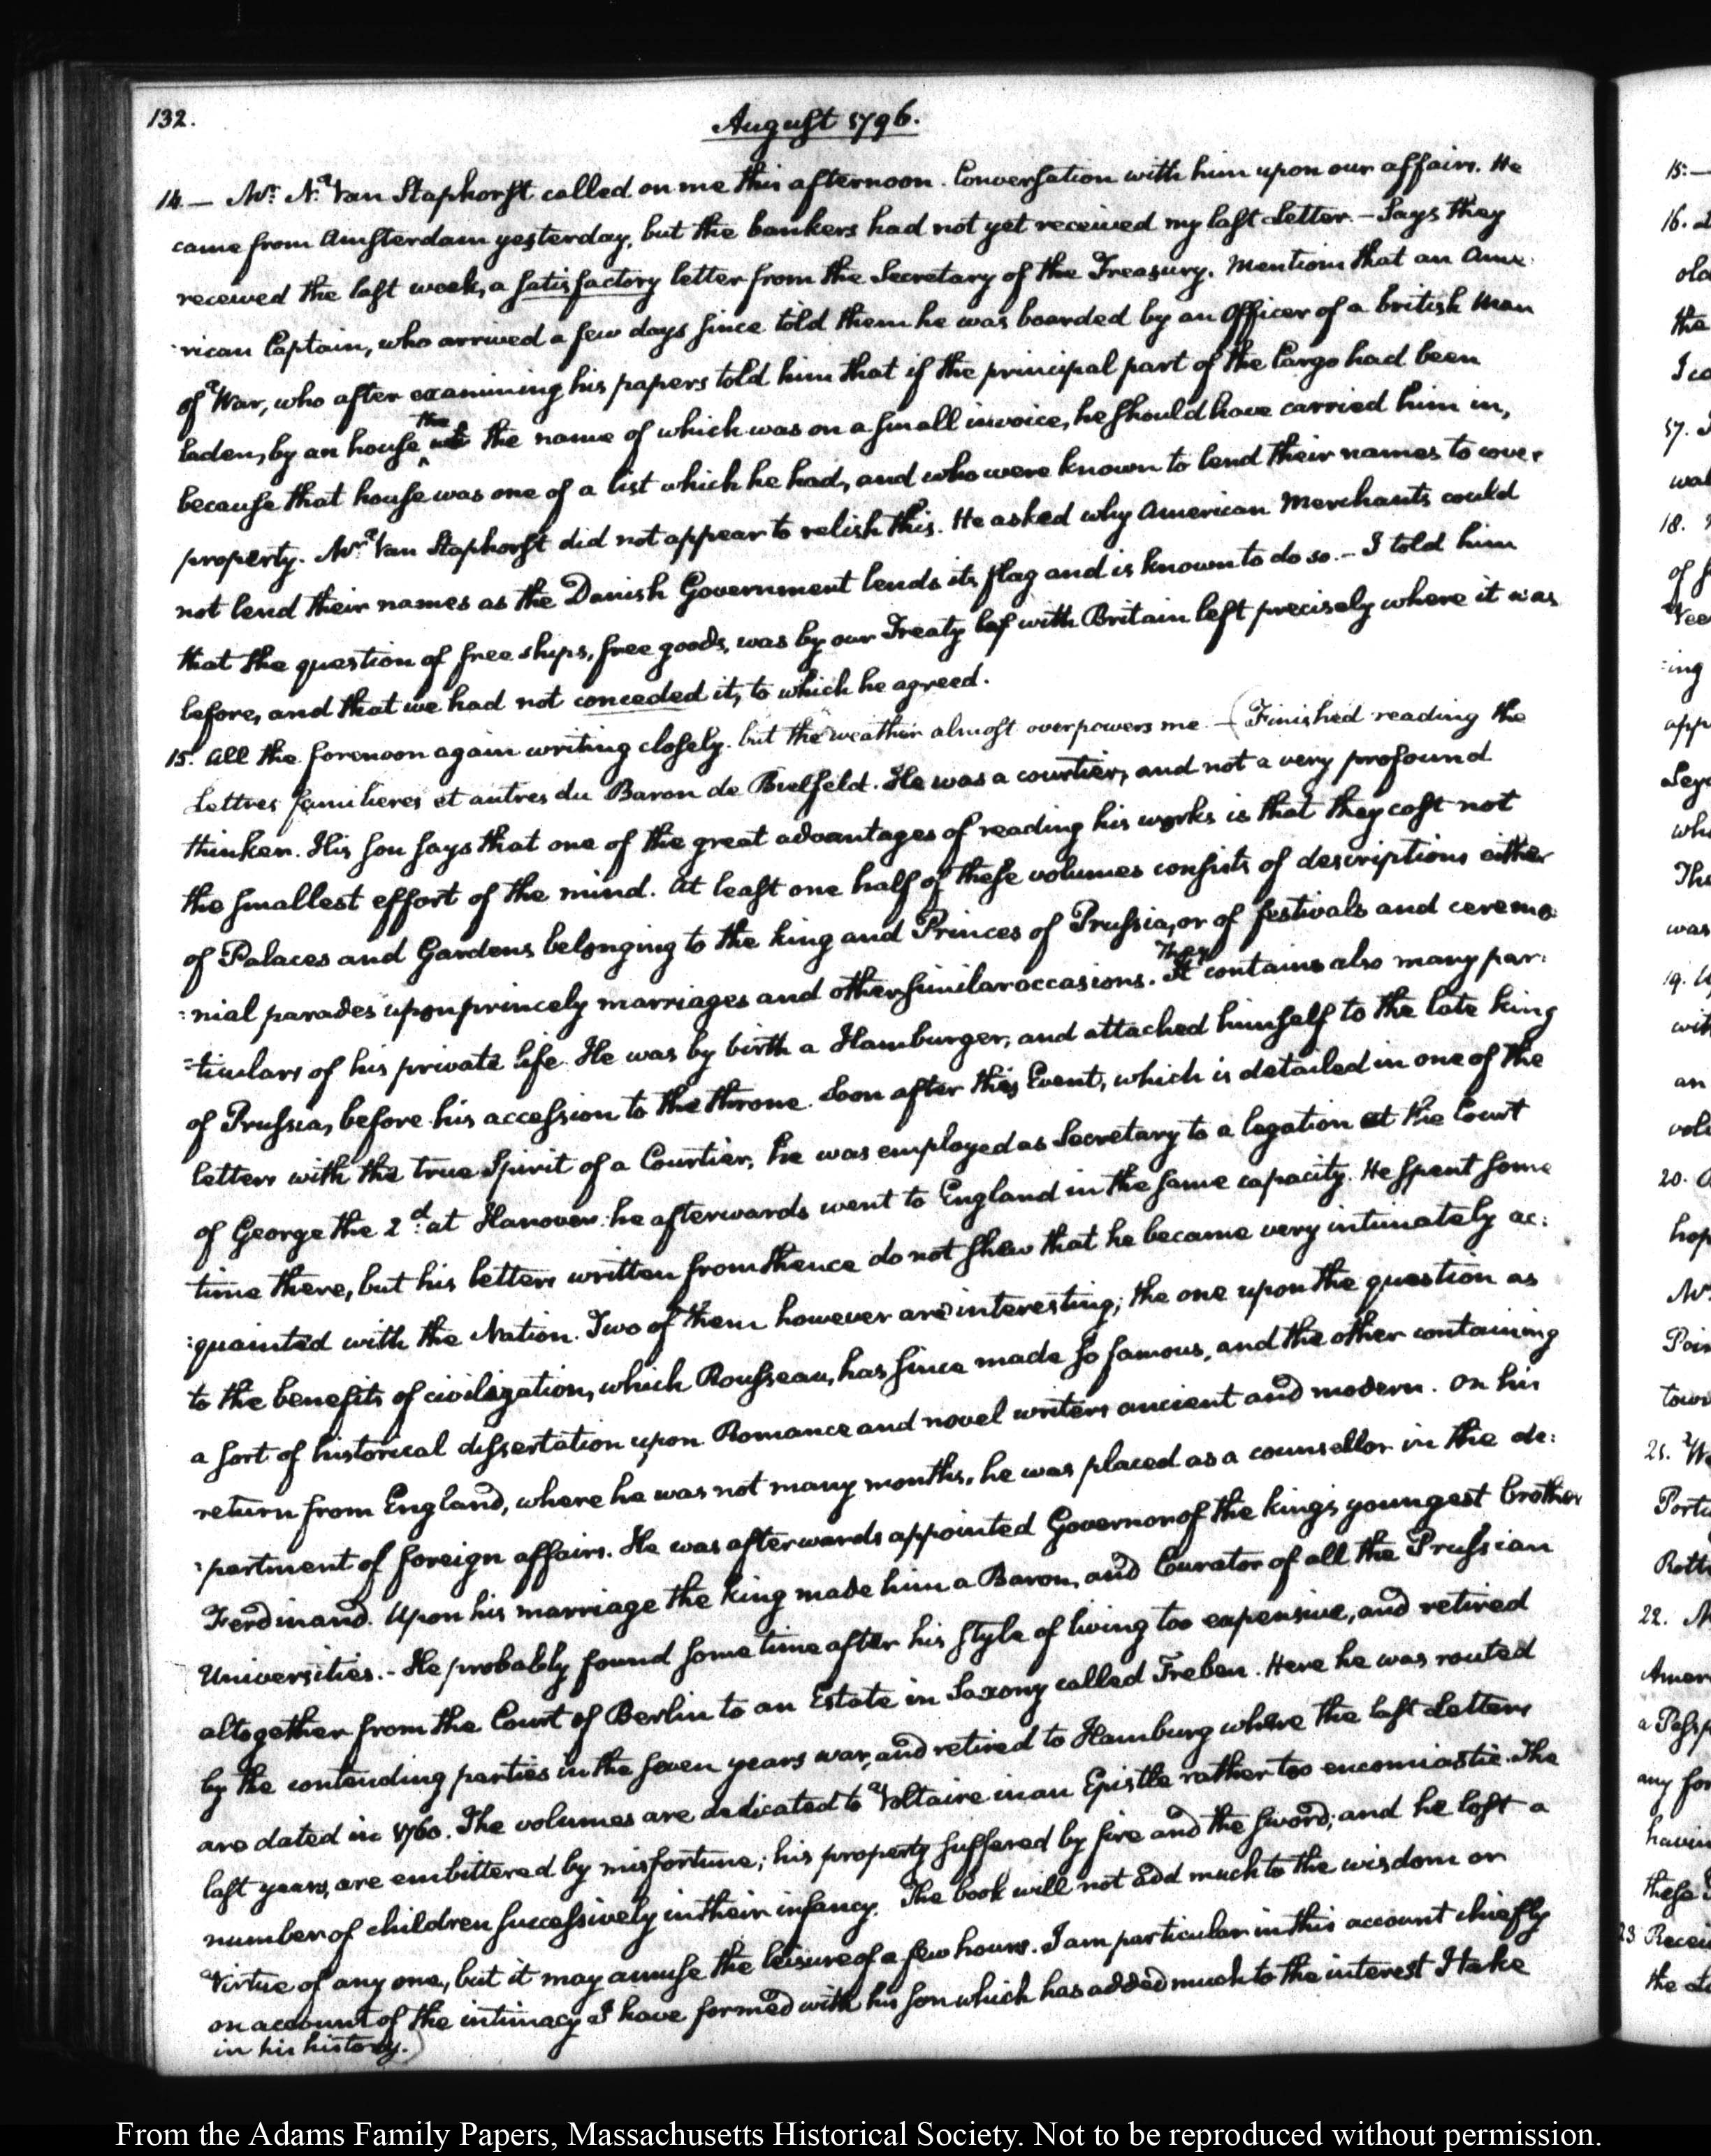 132.
August 1796.
14 — Mr. N. Van Staphorst called on me this afternoon. Conversation with him upon our affairs. He
came from Amsterdam yesterday, but the bankers had not yet received my last Letter. — Says they
received the last week, a satisfactory letter from the Secretary of the Treasury. Mentions that an Ame-
-rican Captain, who arrived a few days since told them he was boarded by an Officer of a british Man
of War, who after examining his papers told him that if the principal part of the Cargo had been
laden, by an house the the name of which was on a small invoice, he should have carried him in,
because that house was one of a list which he had, and who were known to lend their names to cover
property. Mr. Van Staphorst did not appear to relish this. He asked why American Merchants could
not lend their names as the Danish Government lends its flag and is known to do so. — I told him
that the question of free ships, free goods, was by our Treaty with Britain left precisely where it was
before, and that we had not conceded it, to which he agreed.
15. All the forenoon again writing closely. but the weather almost overpowers me — (Finished reading the
Lettres familieres et autres du Baron de Bielfeld. He was a courtier, and not a very profound
thinker. His son says that one of the great advantages of reading his works is that they cost not
the smallest effort of the mind. At least one half of these volumes consists of descriptions either
of Palaces and Gardens belonging to the king and Princes of Prussia, or of festivals and ceremo
:nial parades upon princely marriages and other similar occasions. They It contains also many par:
:ticulars of his private life. He was by birth a Hamburger, and attached himself to the late king
of Prussia, before his accession to the throne. Soon after this Event, which is detailed in one of the
letters with the true Spirit of a Courtier, he was employed as Secretary to a legation at the Court
of George the 2d. at Hanover. he afterwards went to England in the same capacity. He spent some
time there, but his letters written from thence do not shew that he became very intimately ac:
:quainted with the Nation. Two of them however are interesting; the one upon the question as
to the benefits of civilization, which Rousseau, has since made so famous, and the other containing
a sort of historical dissertation upon Romance and novel writers ancient and modern. On his
return from England, where he was not many months, he was placed as a counsellor in the de:
:partment of foreign affairs. He was afterwards appointed Governor of the king's youngest brother
Ferdinand. Upon his marriage the king made him a Baron, and Curator of all the Prussian
Universities. - He probably found some time after his style of living too expensive, and retired
altogether from the Court of Berlin to an Estate in Saxony called Treben. Here he was routed
by the contending parties in the seven years war, and retired to Hamburg where the last Letters
are dated in 1760. The volumes are dedicated to Voltaire in an Epistle rather too encomiastic. The
last years, are embittered by misfortune; his property suffered by fire and the sword; and he lost a
number of children successively in their infancy. The book will not add much to the wisdom or
Virtue of any one, but it may amuse the leisure of a few hours. I am particular in this account chiefly
on account of the intimacy I have formed with his son which has added much to the interest I take
in his history.)
15. —
16.
the
17.
18.
of
19.
an
20.
21.
22.
23
the
From the Adams Family Papers, Massachusetts Historical Society. Not to be reproduced without permission.